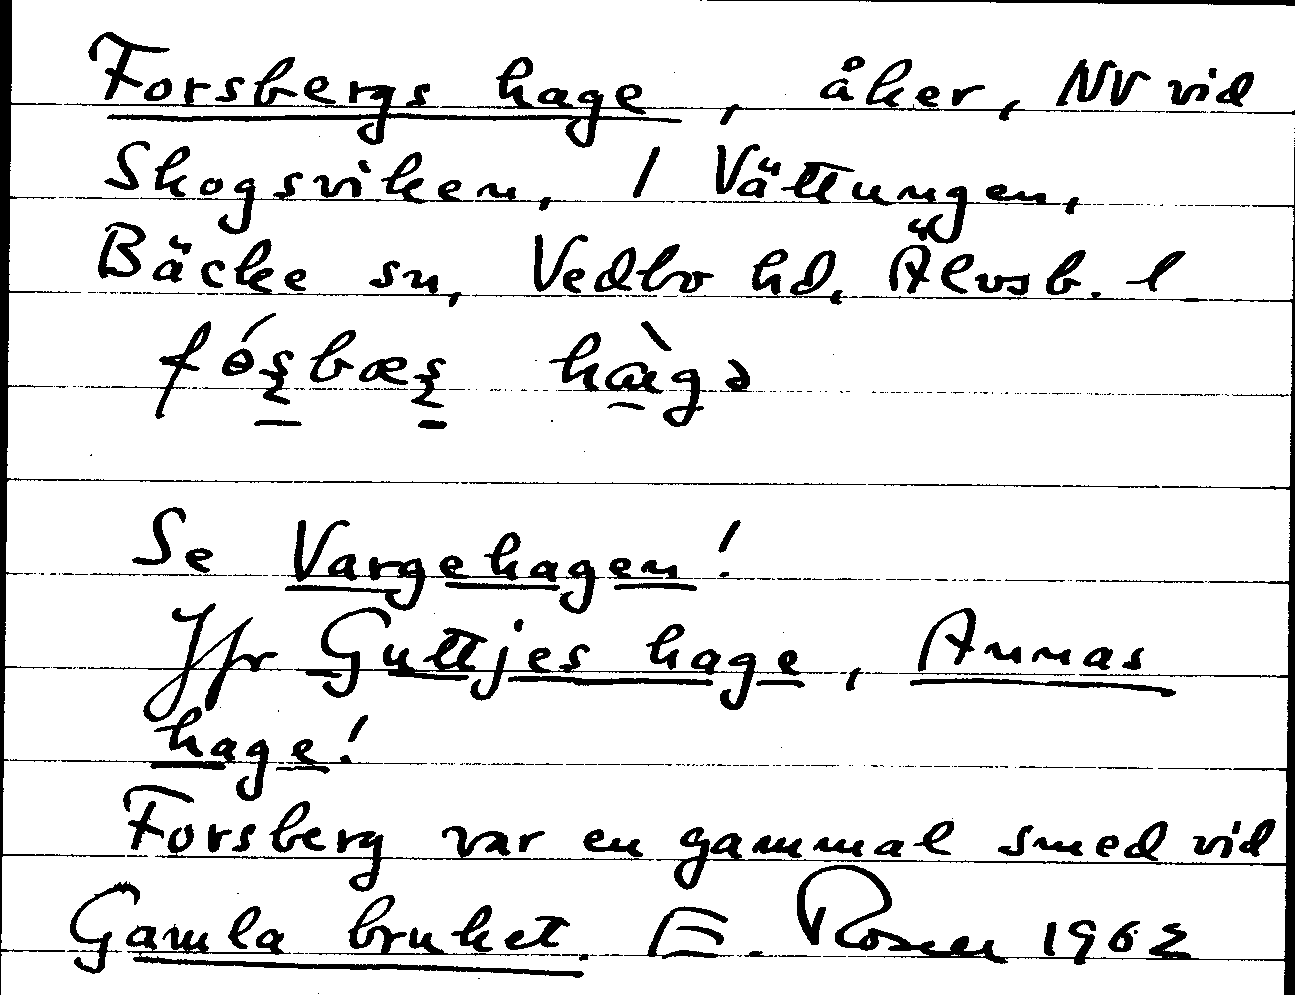 Forsbergs hage, åker, NV vid
Skogsviken, 1 Vättungen,
Bäcke sn, Vedbo hd, Älvsb. l
Se Vargehagen!
Jfr Guttjes hage, Annas
hage!
Forsberg var en gammal smed vid
Gamla bruket. E. Rosen 1962